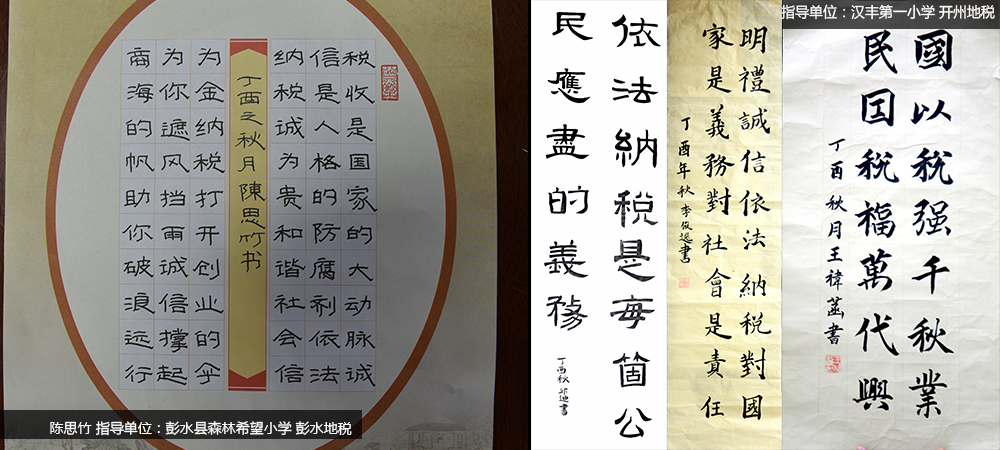 税收是国家的大动脉诚
信是人格的防腐剂依法
纳税诚为贵和谐社会信
丁酉之秋月陳思竹书
为金纳税打开创业的伞
为你遮风挡雨诚信撑起
商海的帆助你破浪远行
陈思竹 指导单位：彭水县森林希望小学 彭水地税
依法納税是每箇公
民應盡的義務
丁酉秋 邱迪書
明禮誠信依法納税對國
家是義務對社會是責任
丁酉年秋李俊逸書
指导单位：汉丰第一小学 开州地税
國以税强千秋業
民囙税福萬代興
丁酉秋月王禕菡書